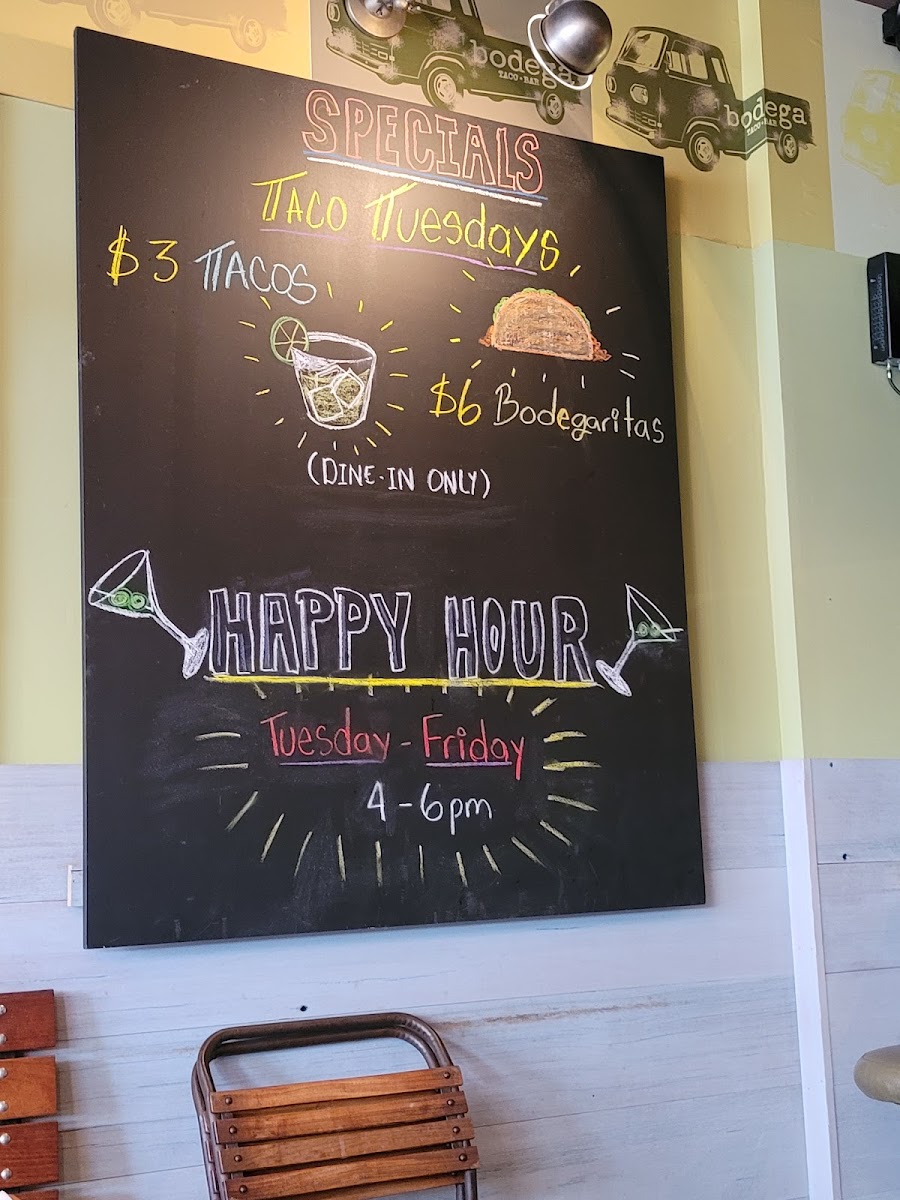 bodega
TACO • BAR
bodega
TACO • BAR
SPECIALS
TACO TUesdayS
$3 TACOS
$6 Bodegaritas
(DINE-IN ONLY)
HAPPY HOUR
Tuesday - Friday
4-6pm